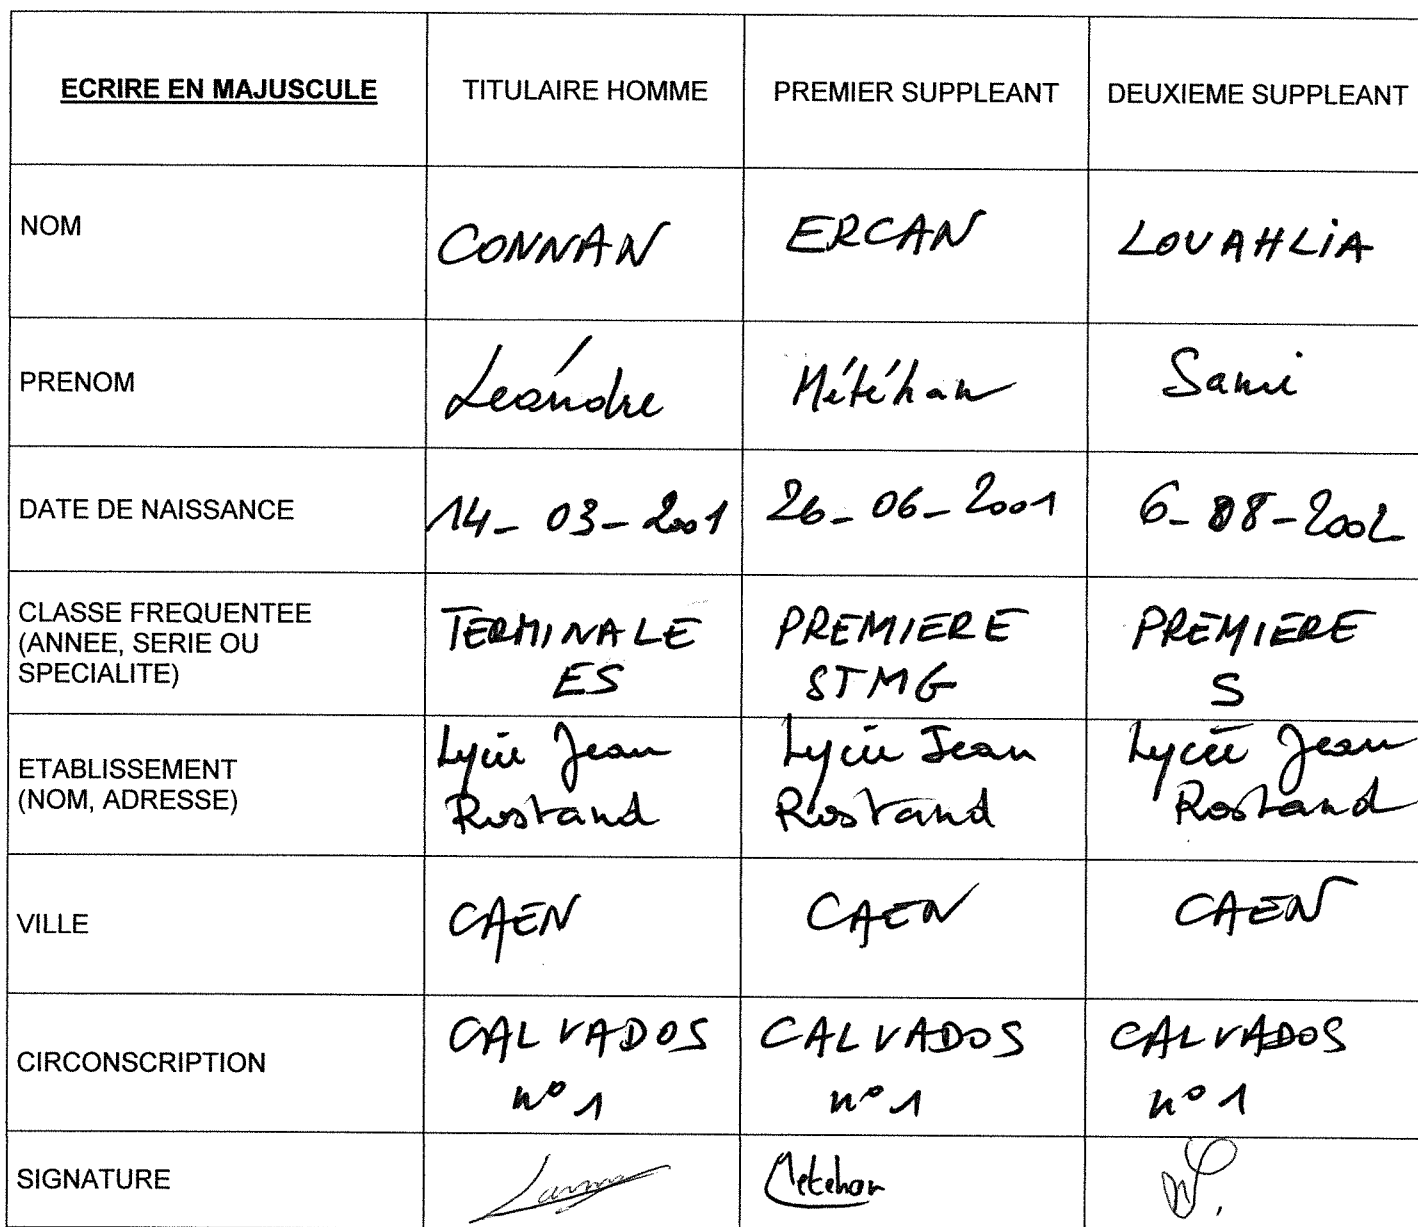 ECRIRE EN MAJUSCULE TITULAIRE HOMME PREMIER SUPPLEANT DEUXIEME SUPPLEANT
NOM CONNAN ERCAN LOUAHLiA
PRENOM Leándre Météhan Sami
DATE DE NAISSANCE 14-03-2001 26-06-2001 6-08-2002
CLASSE FREQUENTEE
(ANNEE, SERIE OU
SPECIALITE)
TERMINALE
ES
PREMIERE
STMG
PREMIERE
S
ETABLISSEMENT
(NOM, ADRESSE)
Lycée Jean
Rostand
Lycée Jean
Rostand
Lycée Jean
Rostand
VILLE CAEN CAEN CAEN
CIRCONSCRIPTION
CALVADOS
n° 1
CALVADOS
n° 1
CALVADOS
n° 1
SIGNATURE Metehan